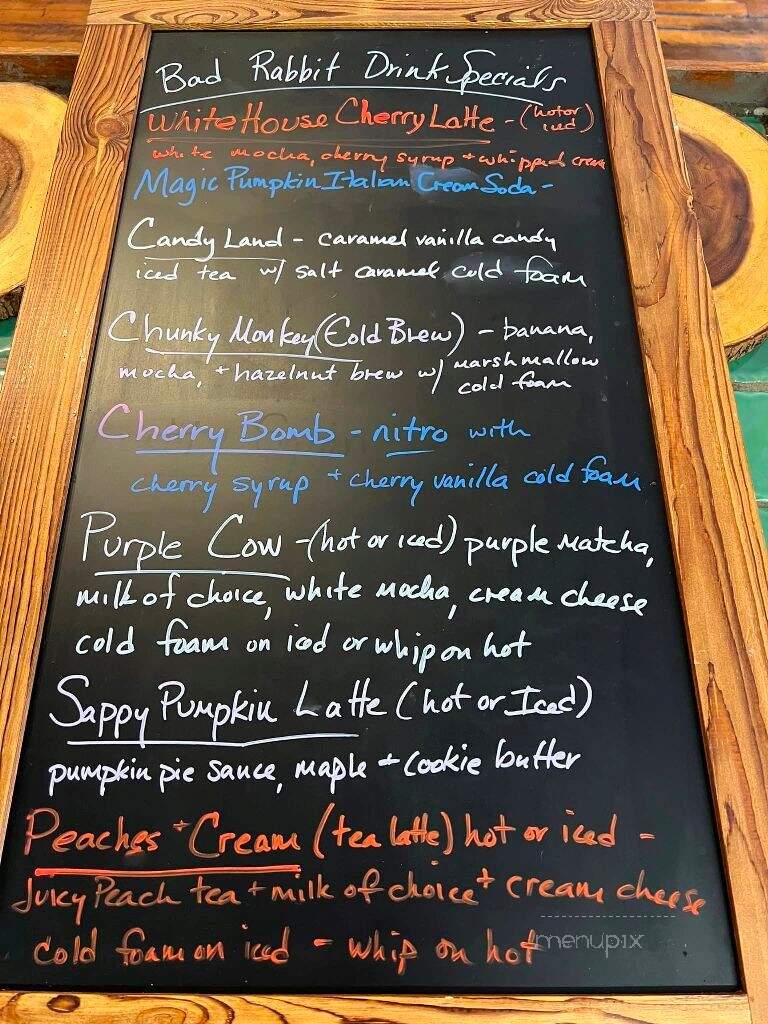 Bad Rabbit Drink Specials
White House Cherry Latte - (hot or iced)
white mocha, cherry syrup + whipped cream
Magic Pumpkin Italian Cream Soda -
Candy Land - caramel vanilla candy
iced tea w/ salt caramel cold foam
Chunky Monkey (Cold Brew) - banana,
mocha, + hazelnut brew w/ marshmallow
cold foam
Cherry Bomb - nitro with
cherry syrup + cherry vanilla cold foam
Purple Cow - (hot or iced) purple matcha,
milk of choice, white mocha, cream cheese
cold foam on iced or whip on hot
Sappy Pumpkin Latte (hot or Iced)
pumpkin pie sauce, maple + cookie butter
Peaches + Cream (tea latte) hot or iced -
Juicy Peach tea + milk of choice + cream cheese
cold foam on iced - whip on hot
menupix